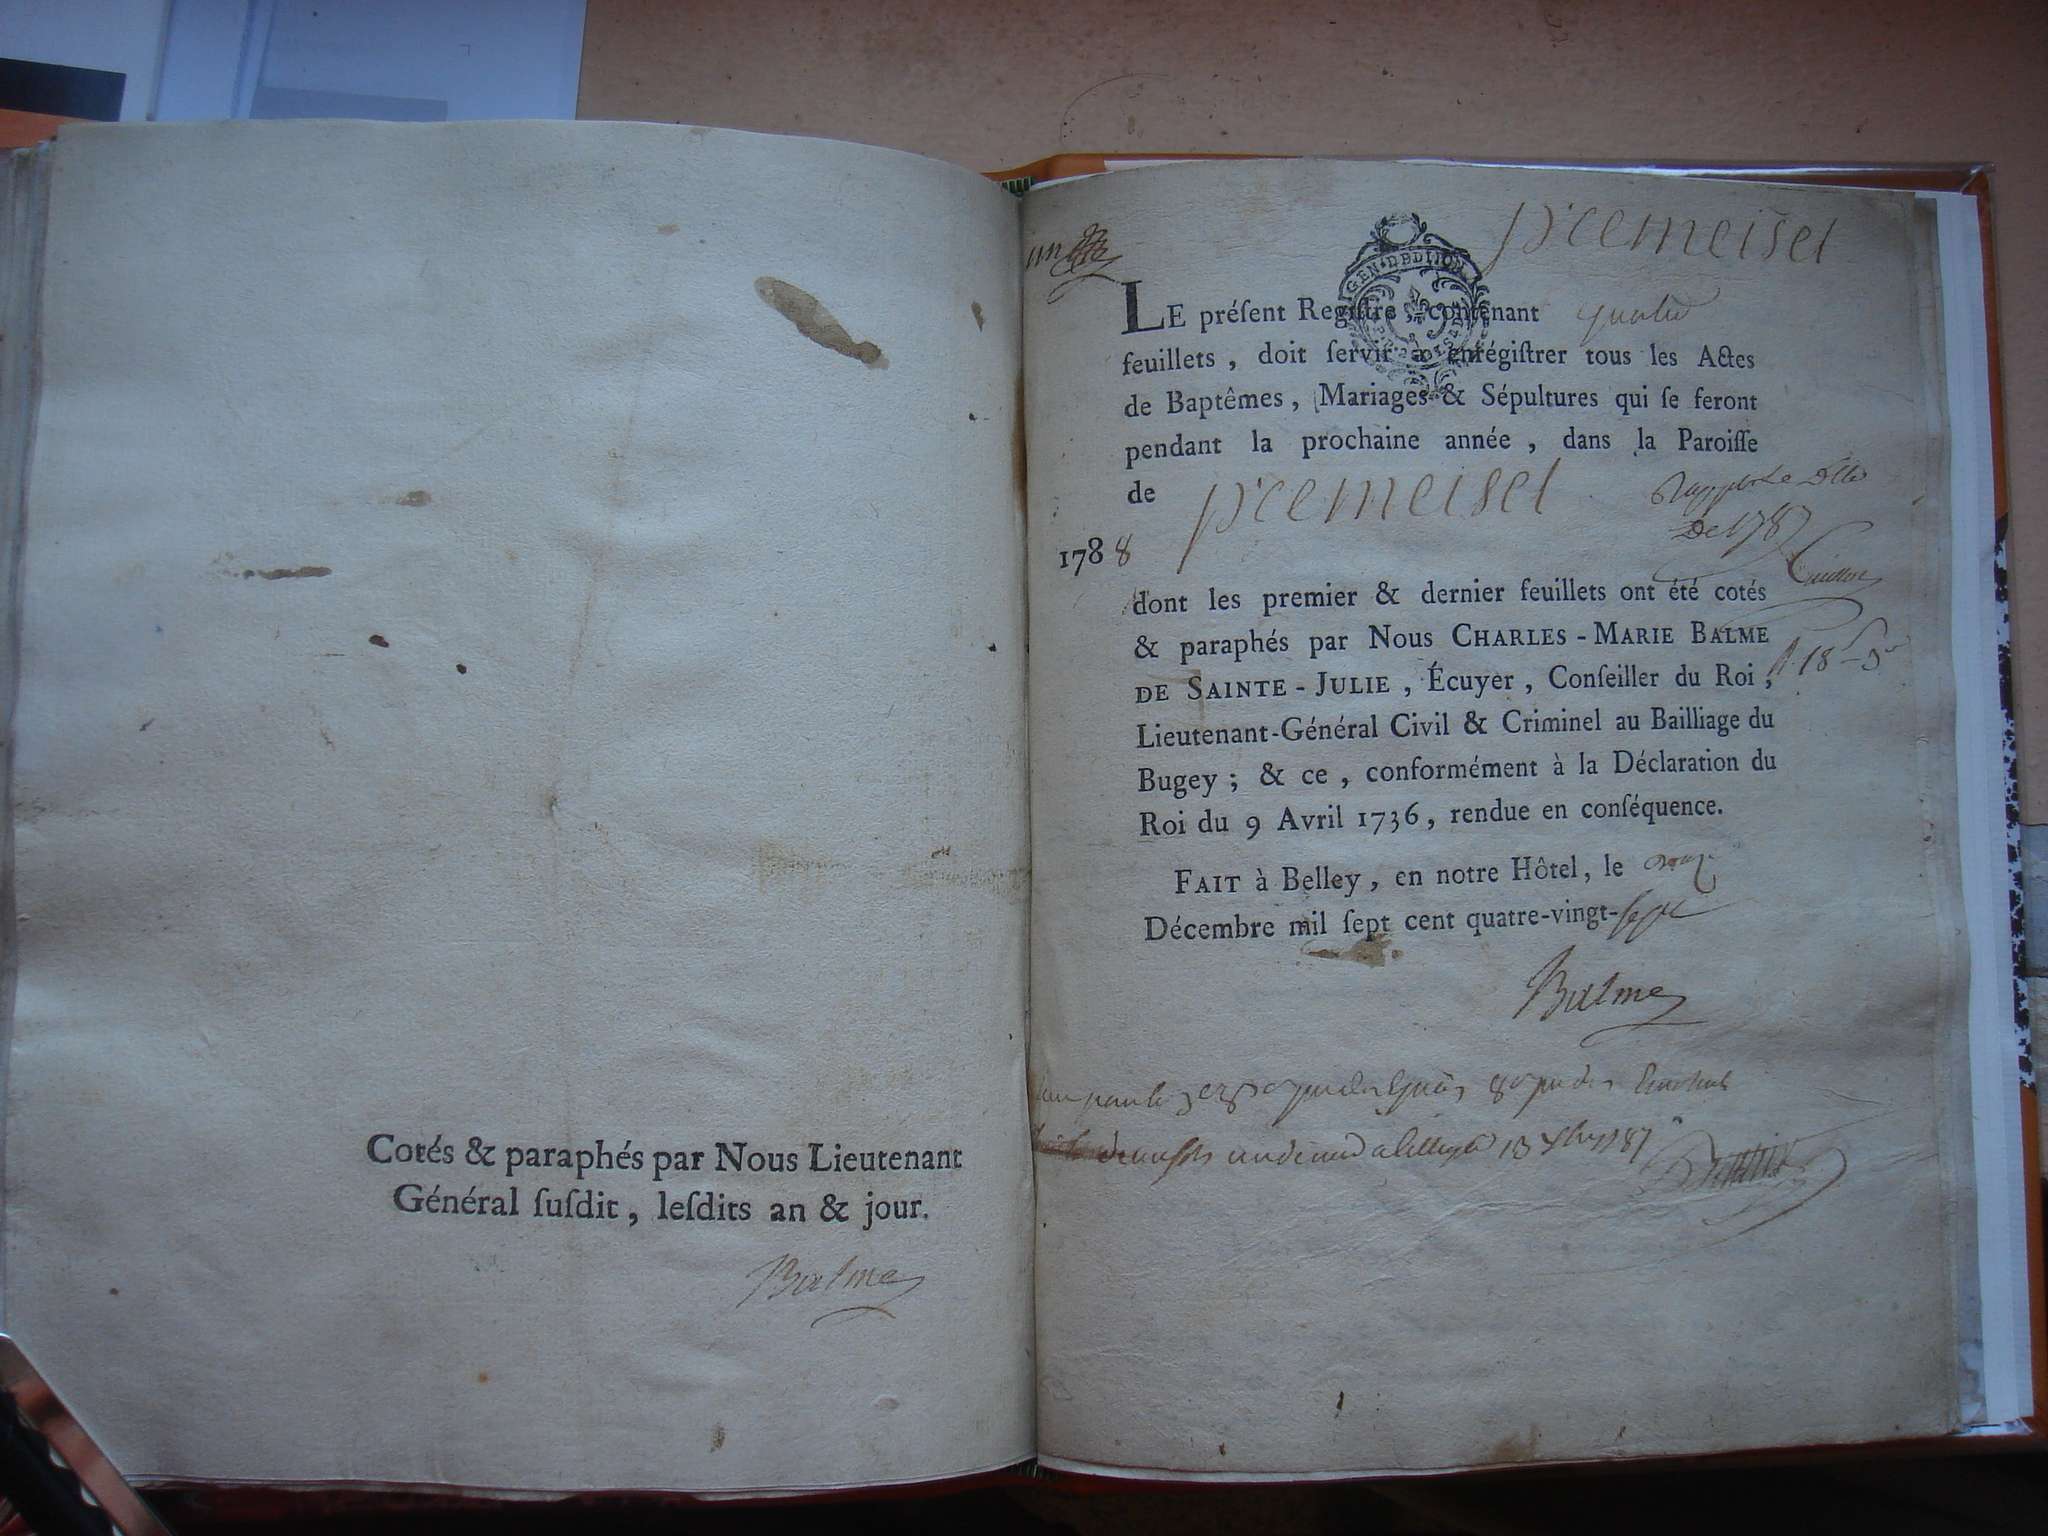 Cotés & paraphés par Nous Lieutenant
Général ſuſdit, leſdits an & jour.
Balme
un
premeisel
GEN·DEDIJON
LE préſent Regiſtre, contenant quatre
feuillets, doit ſervir a enrégiſtrer tous les Actes
de Baptêmes, Mariages & Sépultures qui ſe feront
pendant la prochaine année, dans la Paroiſſe
de premeisel
De 1787
1788
dont les premier & dernier feuillets ont été cotés
& paraphés par Nous CHARLES-MARIE BALME
DE SAINTE-JULIE, Écuyer, Conſeiller du Roi,
Lieutenant-Général Civil & Criminel au Bailliage du
Bugey; & ce, conformément à la Déclaration du
Roi du 9 Avril 1736, rendue en conſéquence.
FAIT à Belley, en notre Hôtel, le onze
Décembre mil ſept cent quatre-vingt-ſept
Balme